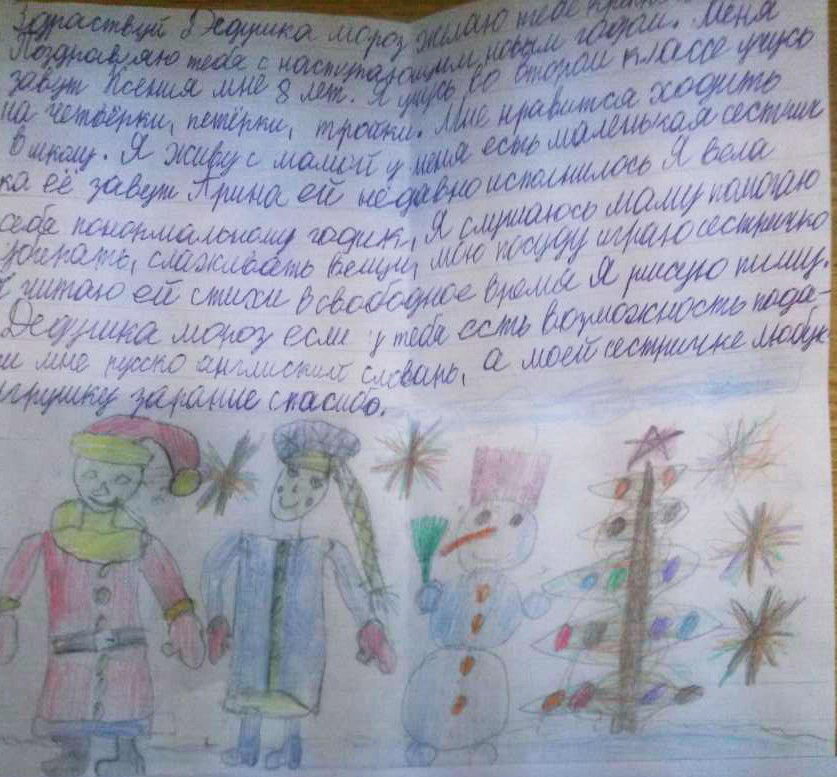 Здраствуй Дедушка мороз желаю тебе
Поздравляю тебя с наступающим, новым годом. Меня
завут Ксения мне 8 лет. Я учусь во втором классе учусь
на четвёрки, петёрки, тройки. Мне нравится ходить
в школу. Я живу с мамой у меня есть маленькая сестрич
ка её завут Арина ей недавно исполнилось Я вела
себя понормальному годик, Я слушаюсь маму помогаю
убирать, слаживать вещи, мою посуду играю сестричко
читаю ей стихи в свободное время Я рисую пишу.
Дедушка мороз если у тебя есть возможность пода-
ри мне русско английский словарь, а моей сестричке любую
игрушку зарание спасибо.